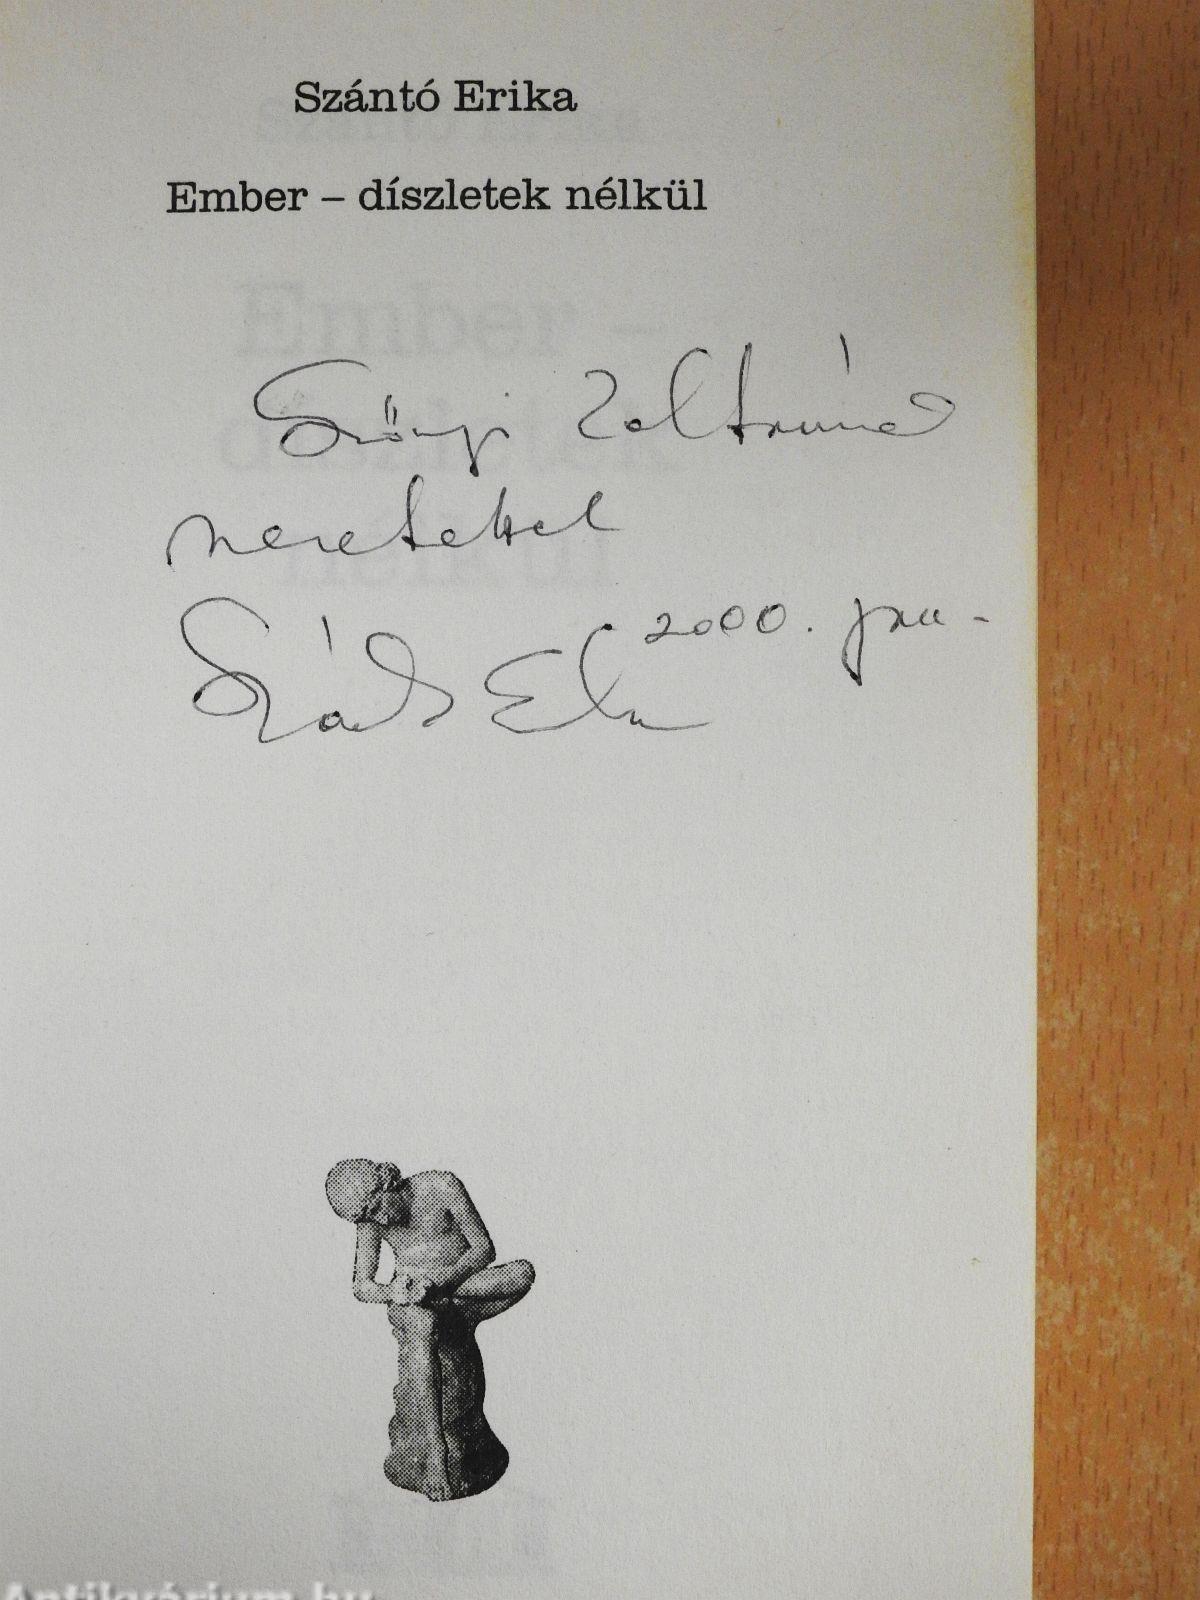 Szántó Erika
Ember – díszletek nélkül
Szőnyi Zoltánnak
szeretettel
2000. jan.
Szántó Erika
Antikvárium.hu